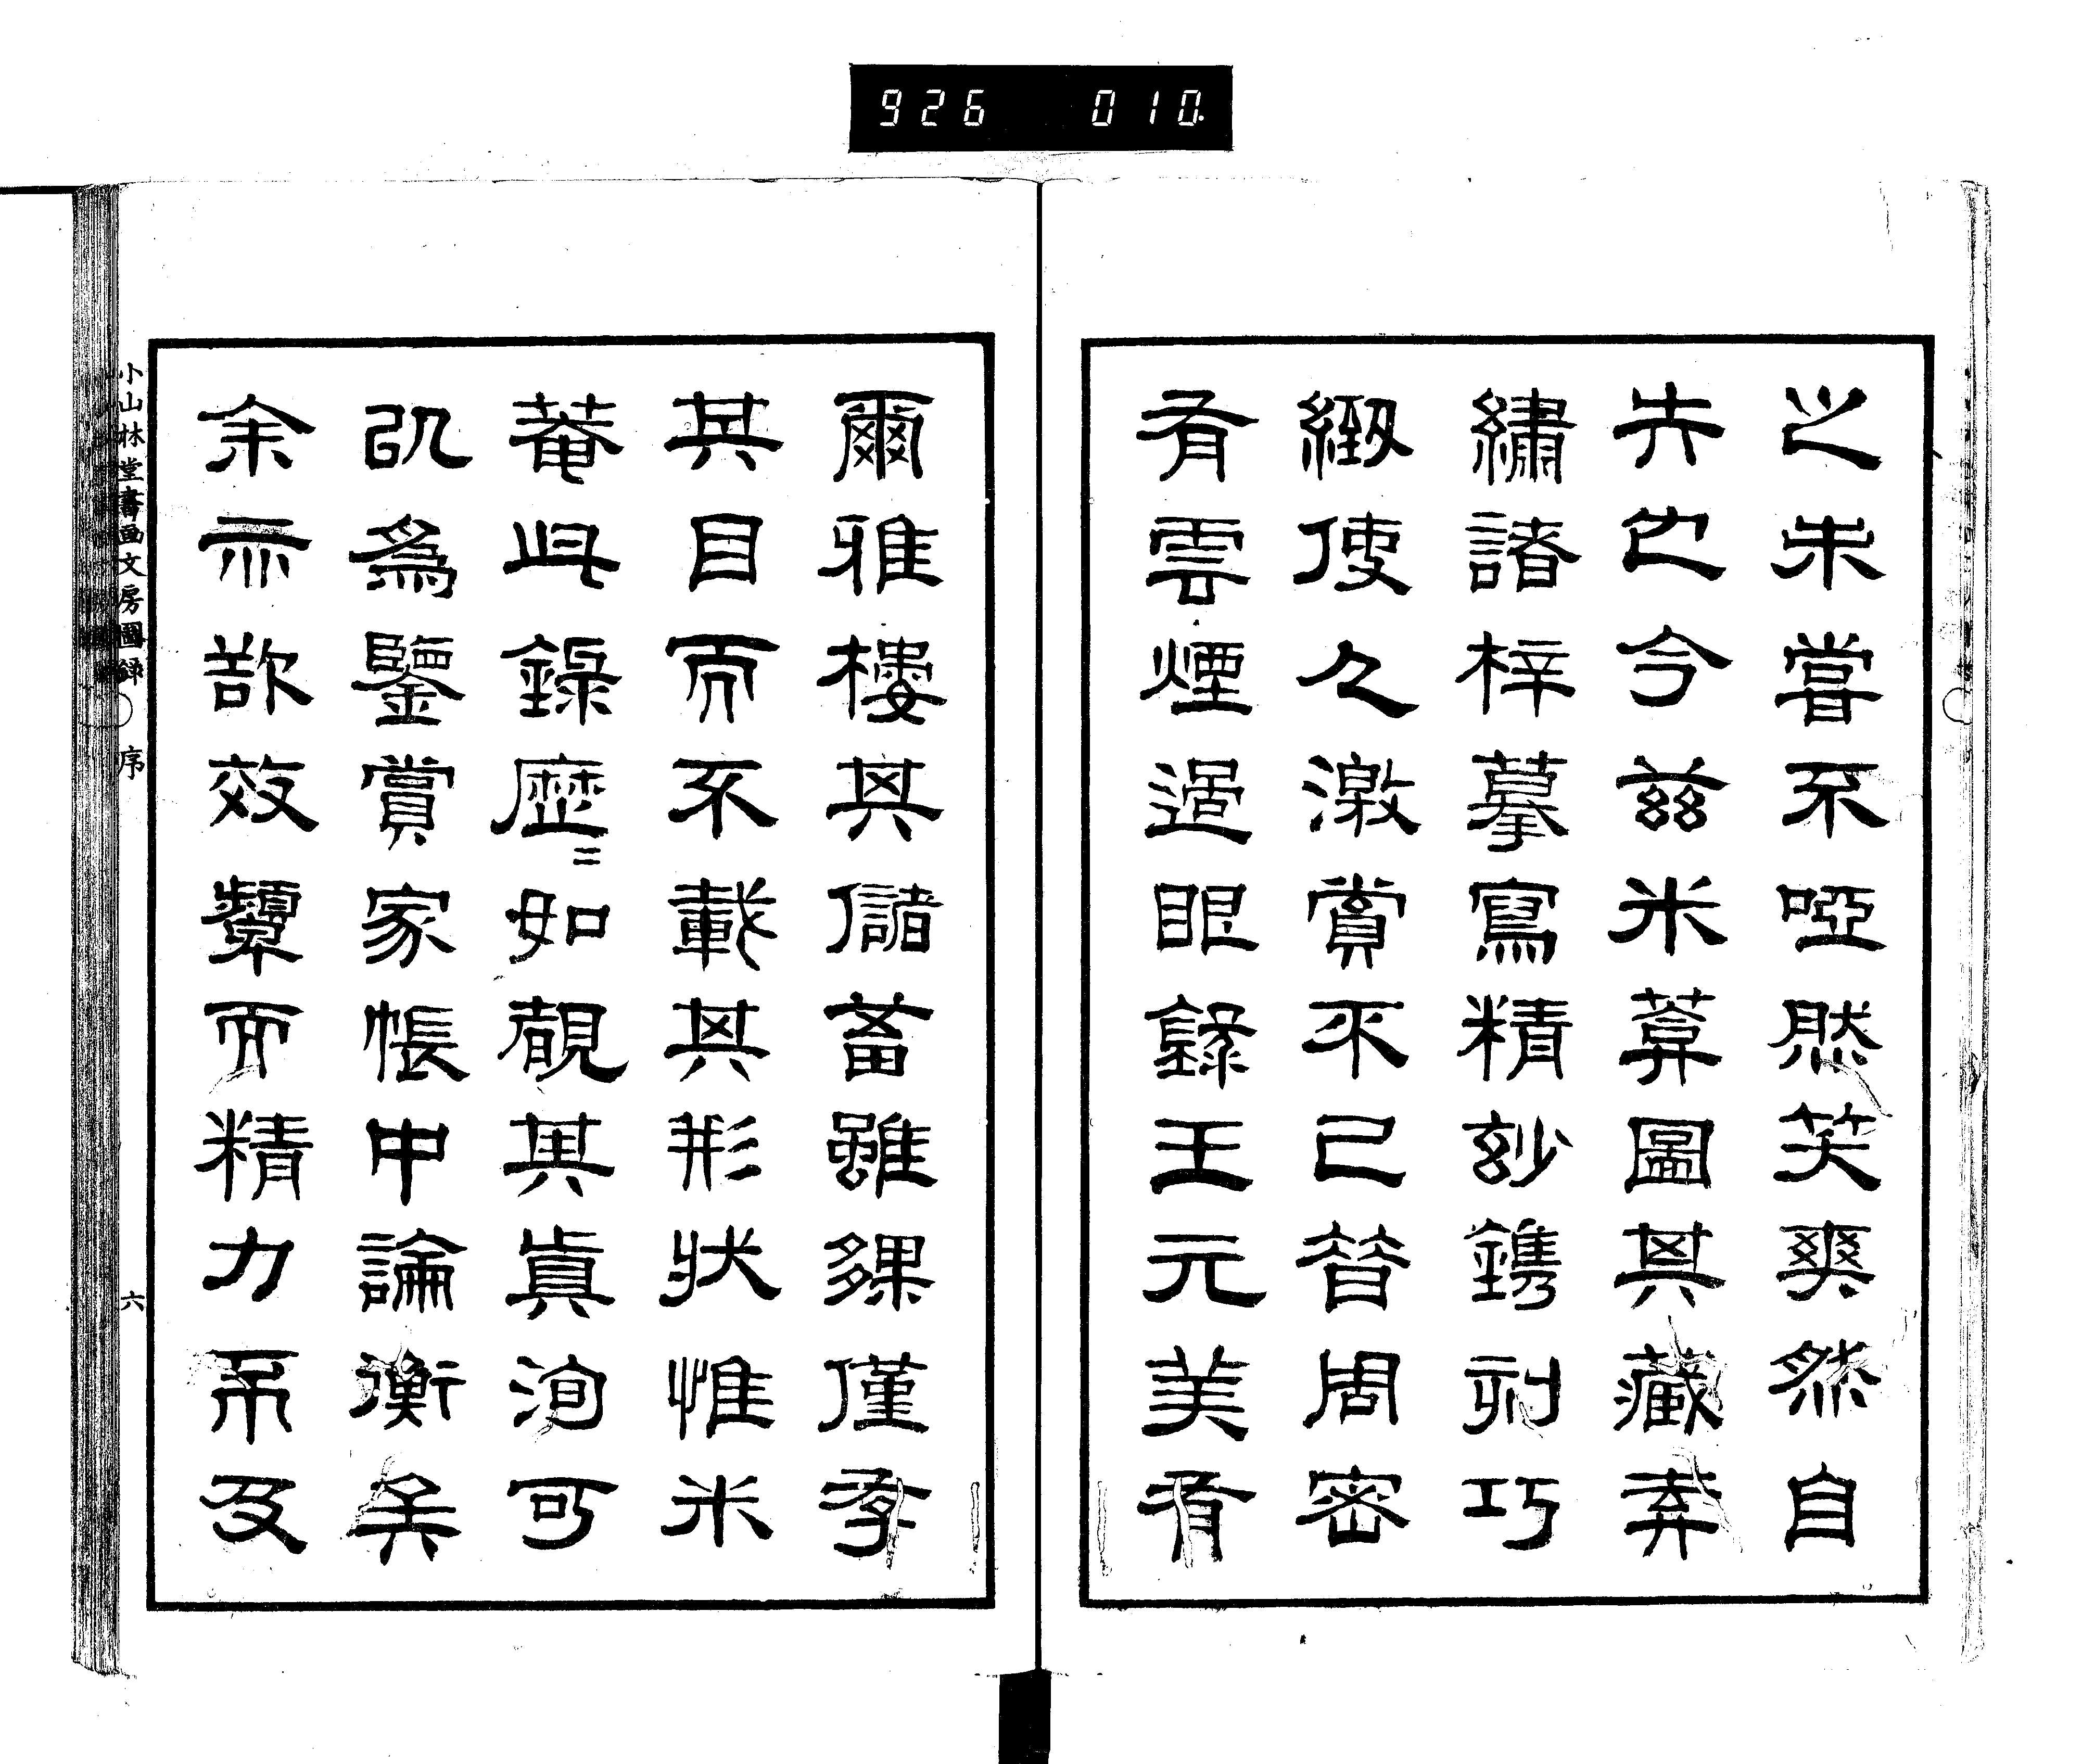 926 010
之未嘗不啞然笑爽然自
失也今茲米葊圖其藏弆
繡諸梓摹寫精玅鐫刻巧
緻使人激賞不已昔周密
有雲煙過眼錄王元美有
爾雅樓其儲蓄雖夥僅存
其目而不載其形狀惟米
菴此錄歷〻如覩其眞洵可
以爲鑒賞家帳中論衡矣
余亦欲效顰而精力不及
小山林堂書画文房圖録 序 六